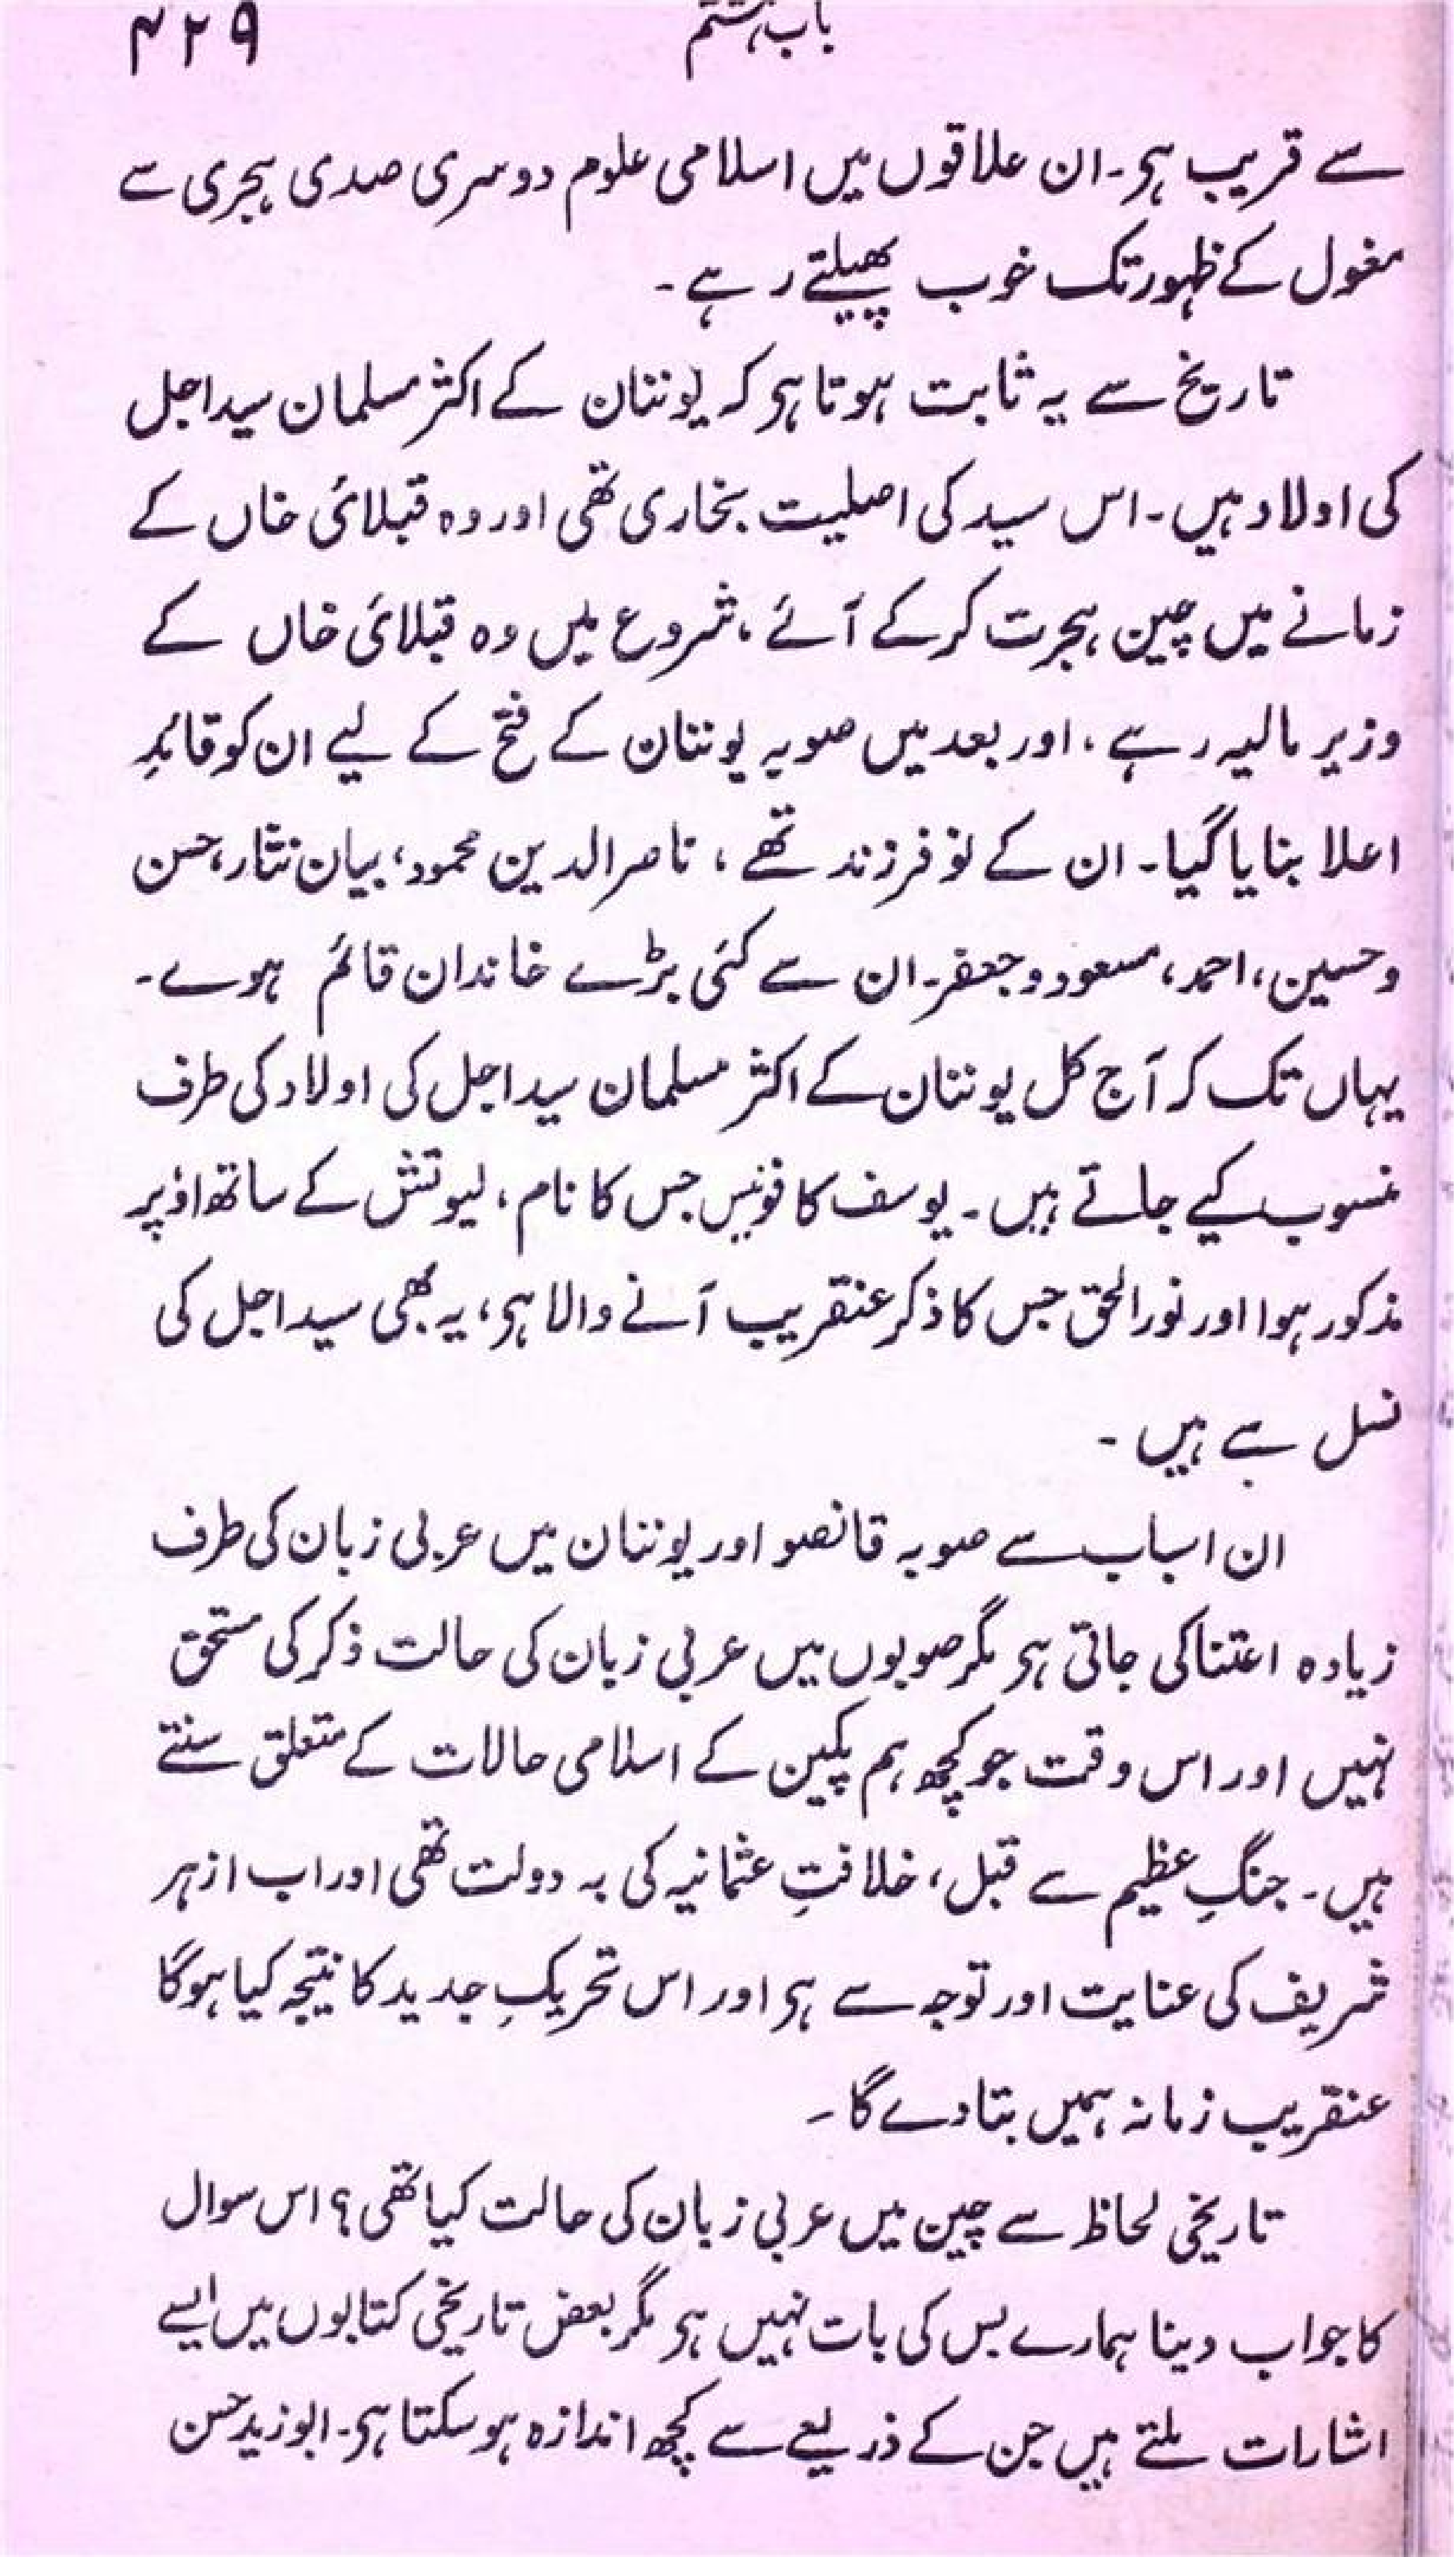 باب ہشتم ۴۲۹
سے قریب ہو۔ ان علاقوں میں اسلامی علوم دوسری صدی ہجری سے
مغول کے ظہور تک خوب پھیلتے رہے۔
تاریخ سے یہ ثابت ہوتا ہو کہ یوننان کے اکثر مسلمان سید اجل
کی اولاد ہیں۔ اس سید کی اصلیت بخاری تھی اور وہ قبلائی خاں کے
زمانے میں چین ہجرت کرکے آئے، شروع میں وہ قبلائی خاں کے
وزیر مالیہ رہے، اور بعد میں صوبہ یوننان کے فتح کے لیے ان کو قائدِ
اعلا بنایا گیا۔ ان کے نو فرزند تھے، ناصر الدین محمود، بیان نتار، حسن
و حسین، احمد، مسعود و جعفر۔ ان سے کئی بڑے خاندان قائم ہوے۔
یہاں تک کہ آج کل یوننان کے اکثر مسلمان سید اجل کی اولاد کی طرف
منسوب کیے جاتے ہیں۔ یوسف کا فونیس جس کا نام، لیوتش کے ساتھ اوٗپر
مذکور ہوا اور نور الحق جس کا ذکر عنقریب آنے والا ہو، یہ بھی سید اجل کی
نسل سے ہیں۔
ان اسباب سے صوبہ قانصو اور یوننان میں عربی زبان کی طرف
زیادہ اعتنا کی جاتی ہو مگر صوبوں میں عربی زبان کی حالت ذکر کی مستحق
نہیں اور اس وقت جو کچھ ہم پکین کے اسلامی حالات کے متعلق سنتے
ہیں۔ جنگِ عظیم سے قبل، خلافتِ عثمانیہ کی بہ دولت تھی اور اب ازہر
شریف کی عنایت اور توجہ سے ہو اور اس تحریکِ جدید کا نتیجہ کیا ہوگا
عنقریب زمانہ ہمیں بتادے گا۔
تاریخی لحاظ سے چین میں عربی زبان کی حالت کیا تھی؟ اس سوال
کا جواب دینا ہمارے بس کی بات نہیں ہو مگر بعض تاریخی کتابوں میں ایسے
اشارات ملتے ہیں جن کے ذریعے سے کچھ اندازہ ہو سکتا ہو۔ ابوزید حسن